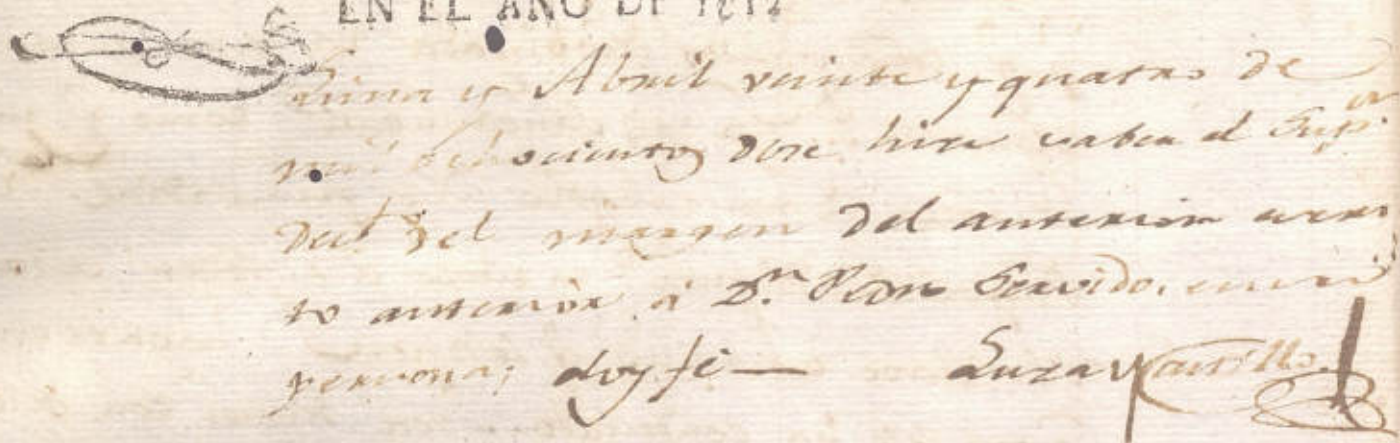 EN EL AÑO DE 1812
Lima y Abril veinte y quatro de
mil ochocientos dose hice saber el Supr
Dect del margen del anterior escri
to anterior á Dn Pedro Garrido, en su
persona; doy fe —